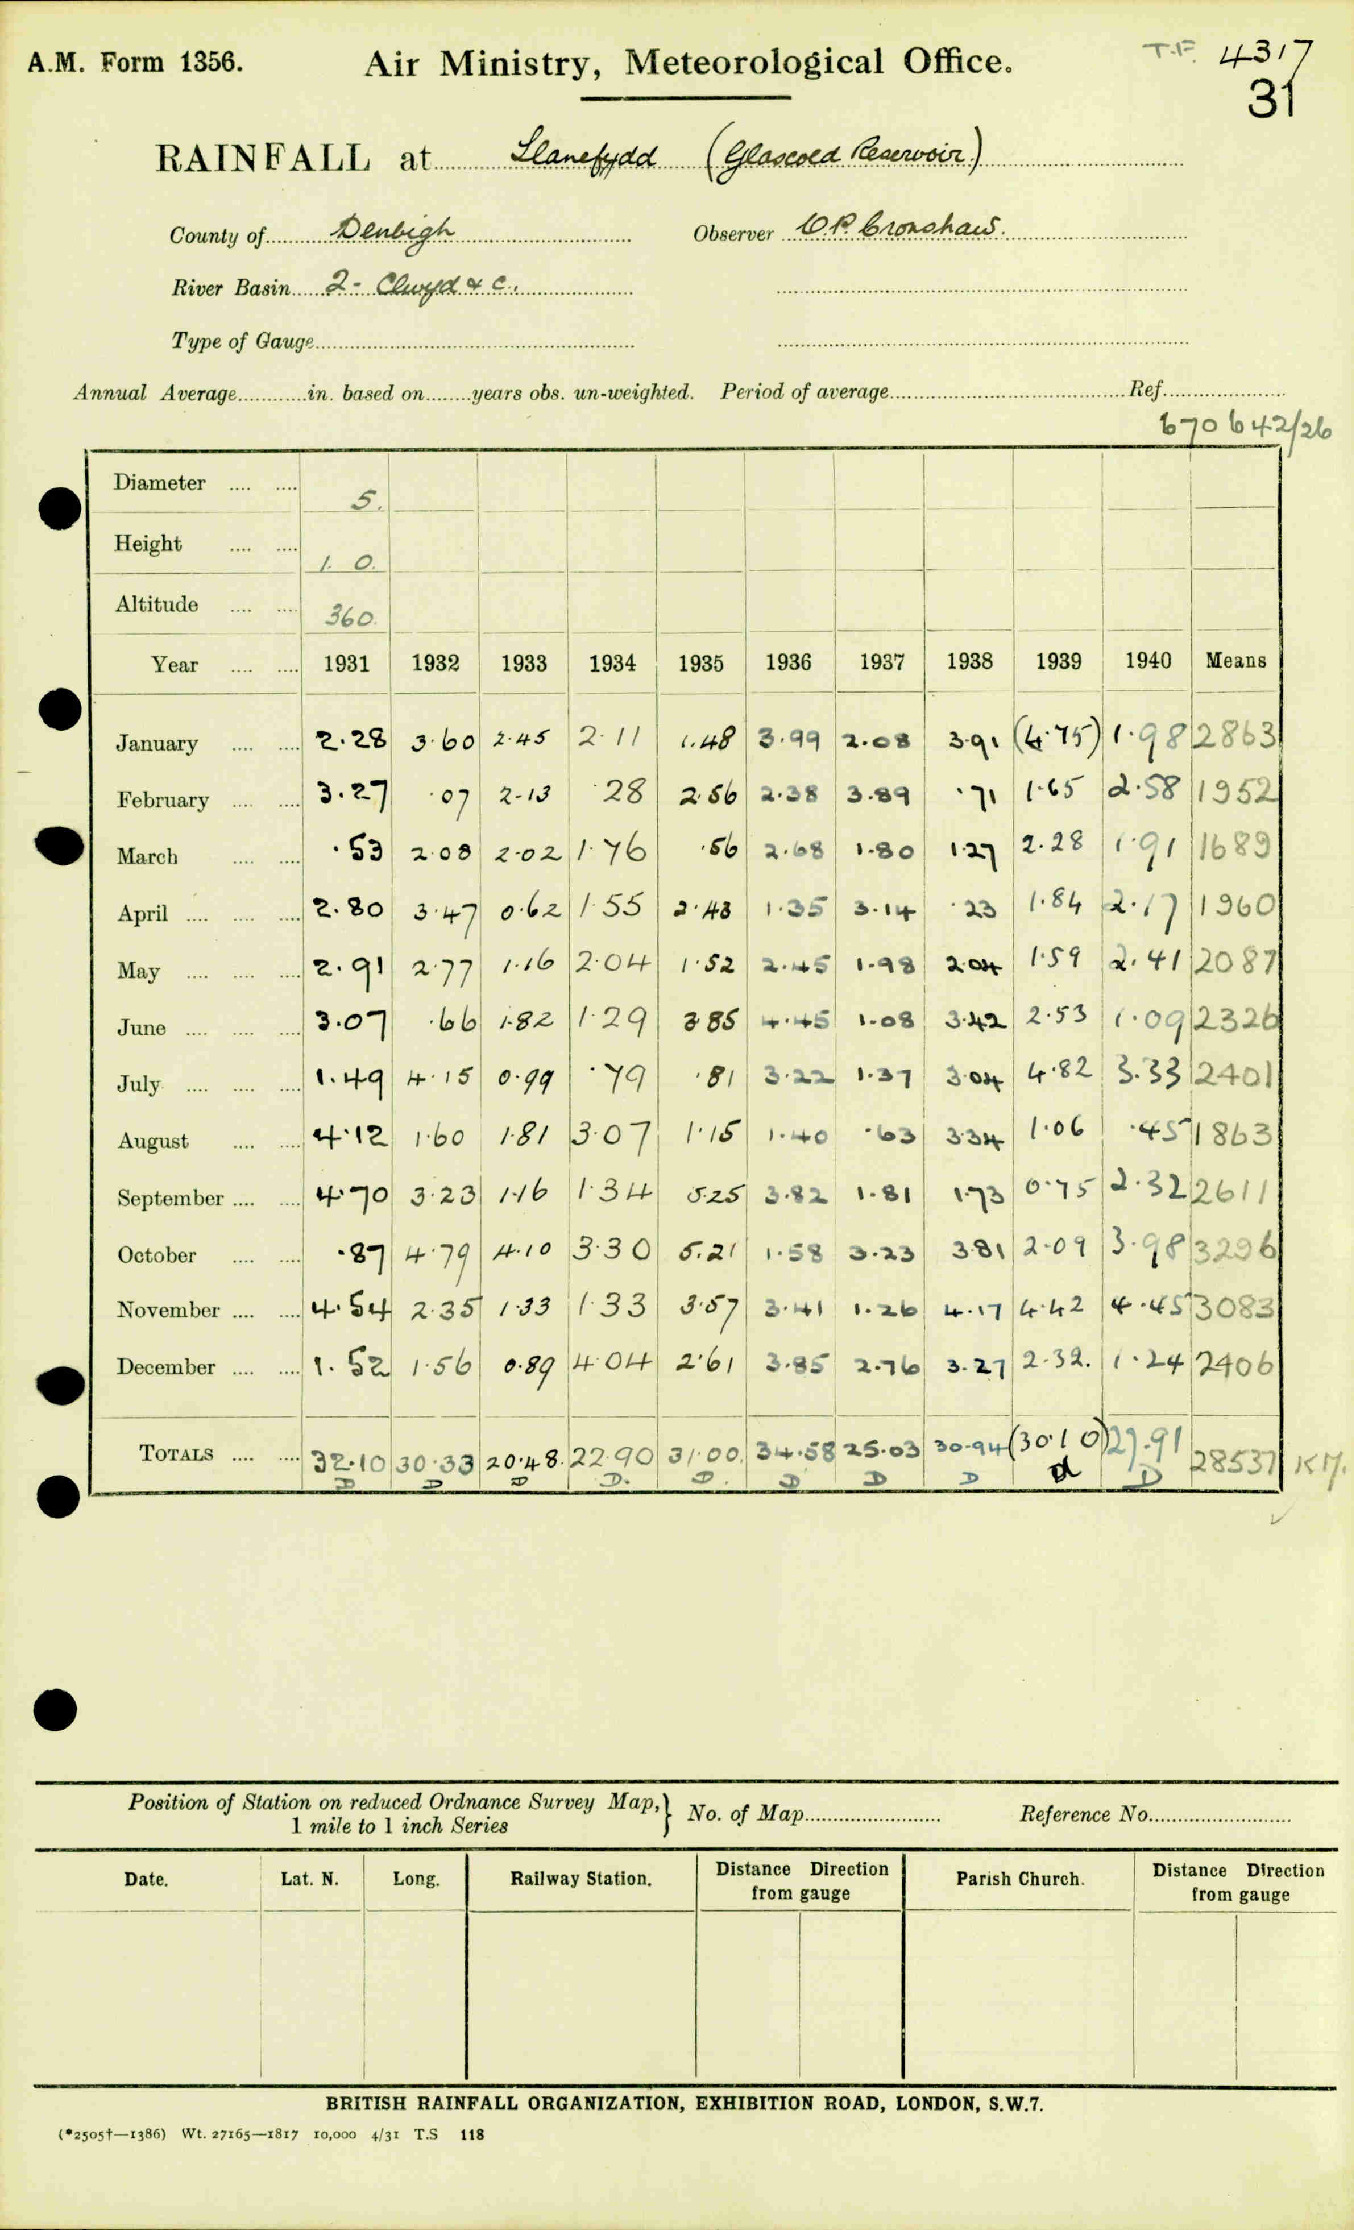 A.M. Form 1356. Air Ministry, Meteorological Office. T.F. 4317
31
RAINFALL at Llanefydd (Glascoed Reservoir)
County of Denbigh Observer O.P. Cronshaw.
River Basin 2- Clwyd & C.
Type of Gauge
Annual Average in. based on years obs. un-weighted. Period of average Ref.
670642/26
Diameter 5.
Height 1. 0.
Altitude 360.
Year 1931 1932 1933 1934 1935 1936 1937 1938 1939 1940 Means
January 2.28 3.60 2.45 2.11 1.48 3.99 2.08 3.91 (4.75) 1.98 2863
February 3.27 .07 2.13 .28 2.56 2.38 3.89 .71 1.65 2.58 1952
March .53 2.08 2.02 1.76 .56 2.68 1.80 1.27 2.28 1.91 1689
April 2.80 3.47 0.62 1.55 2.43 1.35 3.14 .23 1.84 2.17 1960
May 2.91 2.77 1.16 2.04 1.52 2.45 1.98 2.04 1.59 2.41 2087
June 3.07 .66 1.82 1.29 3.85 4.45 1.08 3.42 2.53 1.09 2326
July 1.49 4.15 0.99 .79 .81 3.22 1.37 3.04 4.82 3.33 2401
August 4.12 1.60 1.81 3.07 1.15 1.40 .63 3.34 1.06 .45 1863
September 4.70 3.23 1.16 1.34 5.25 3.82 1.81 1.73 0.75 2.32 2611
October .87 4.79 4.10 3.30 5.21 1.58 3.23 3.81 2.09 3.98 3296
November 4.54 2.35 1.33 1.33 3.57 3.41 1.26 4.17 4.42 4.45 3083
December 1.52 1.56 0.89 4.04 2.61 3.85 2.76 3.27 2.32. 1.24 2406
TOTALS 32.10 30.33 20.48. 22.90 31.00. 34.58 25.03 30.94 (30.10) 27.91 28537 KM.
D D D D. D. D D D d D
Position of Station on reduced Ordnance Survey Map, } No. of Map Reference No.
1 mile to 1 inch Series
Date. Lat. N. Long. Railway Station. Distance Direction Parish Church. Distance Direction
from gauge from gauge
BRITISH RAINFALL ORGANIZATION, EXHIBITION ROAD, LONDON, S.W.7.
(*2505†—1386) Wt. 27165—1817 10,000 4/31 T.S 118